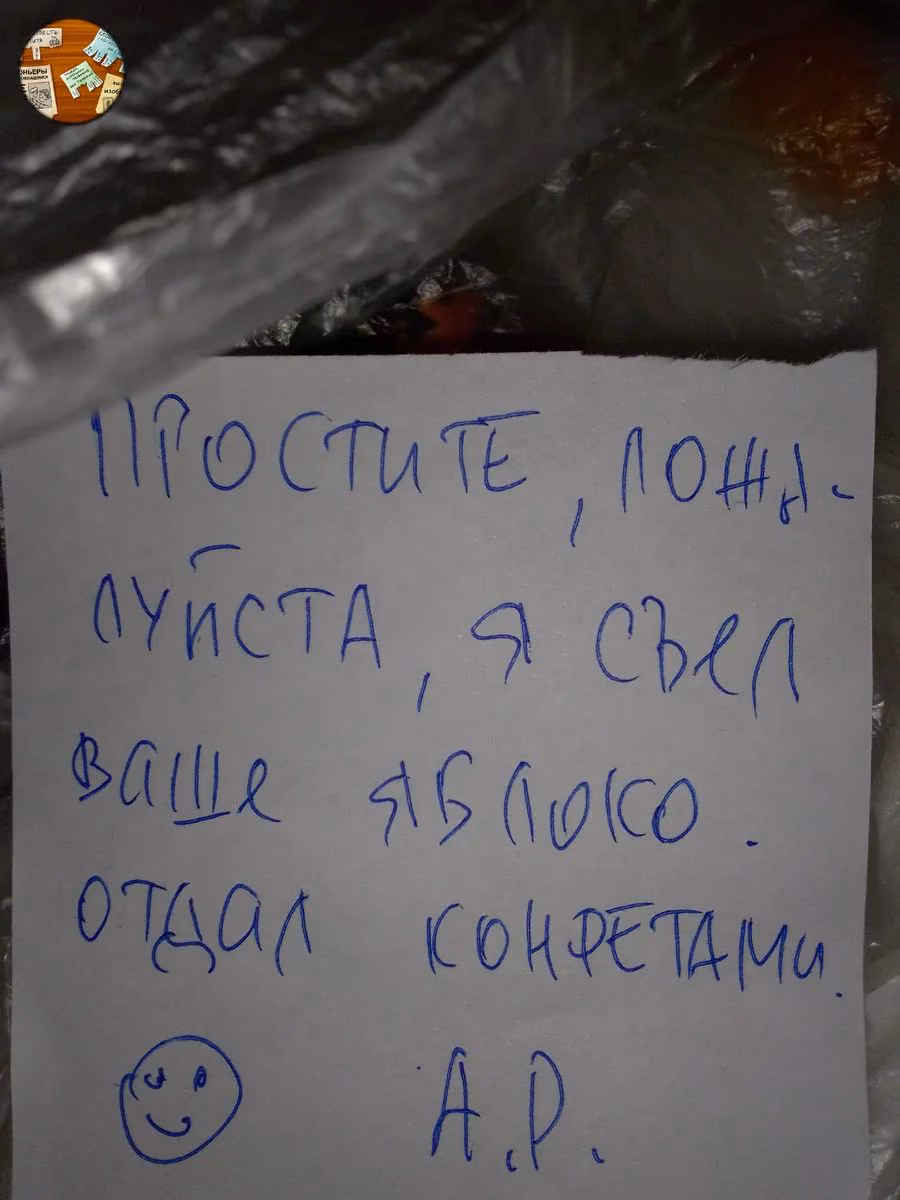 ПРОСТИТЕ, ПОЖА-
ЛУЙСТА, Я СЪЕЛ
ВАШЕ ЯБЛОКО.
ОТДАЛ КОНФЕТАМИ.
А.Р.